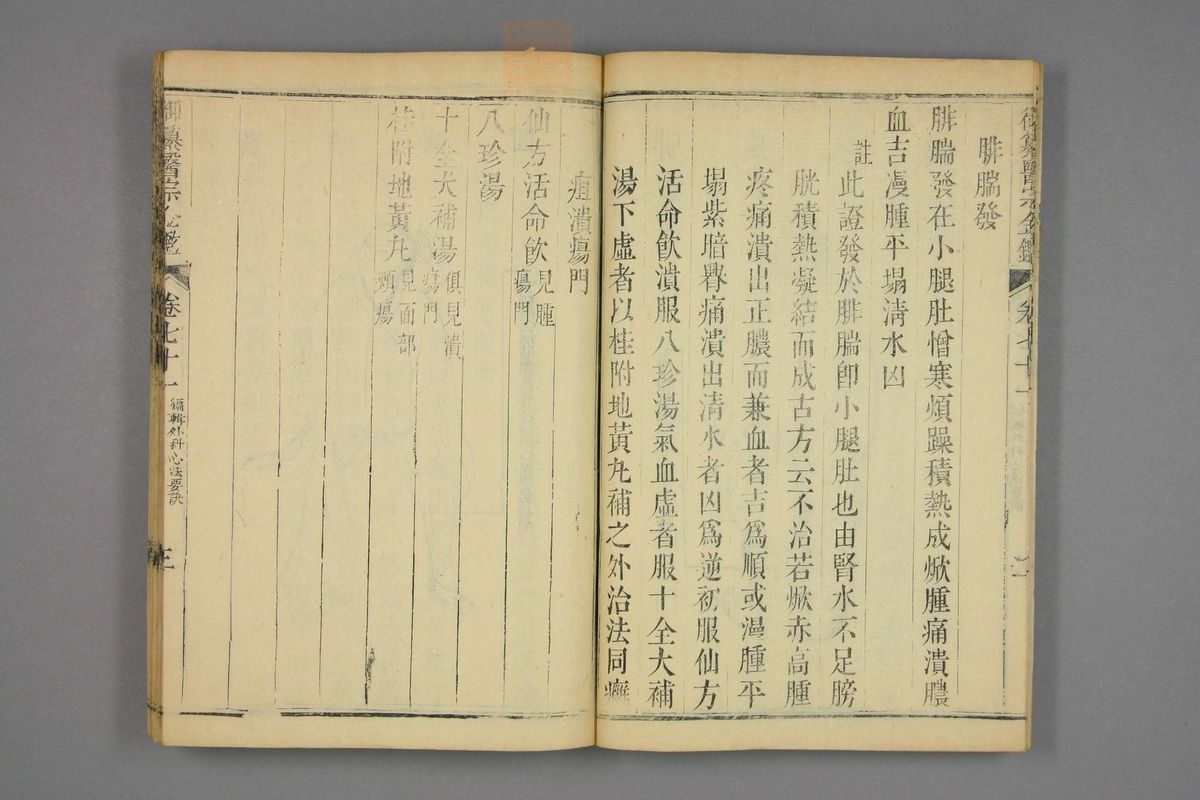 御纂醫宗金鑑 卷七十一
腓腨發
腓腨發在小腿肚憎寒煩躁積熱成焮腫痛潰膿
血吉漫腫平塌清水凶
註
此證發於腓腨卽小腿肚也由腎水不足膀
胱積熱凝結而成古方云不治若焮赤高腫
疼痛潰出正膿而兼血者吉爲順或漫腫平
塌紫暗臖痛潰出清水者凶爲逆初服仙方
活命飲潰服八珍湯氣血虛者服十全大補
湯下虛者以桂附地黃丸補之外治法同癰
疽潰瘍門
仙方活命飲見腫瘍門
八珍湯
十全大補湯俱見潰瘍門
桂附地黃丸見面部頰瘍
御纂醫宗金鑑 卷七十一 編輯外科心法要訣 三